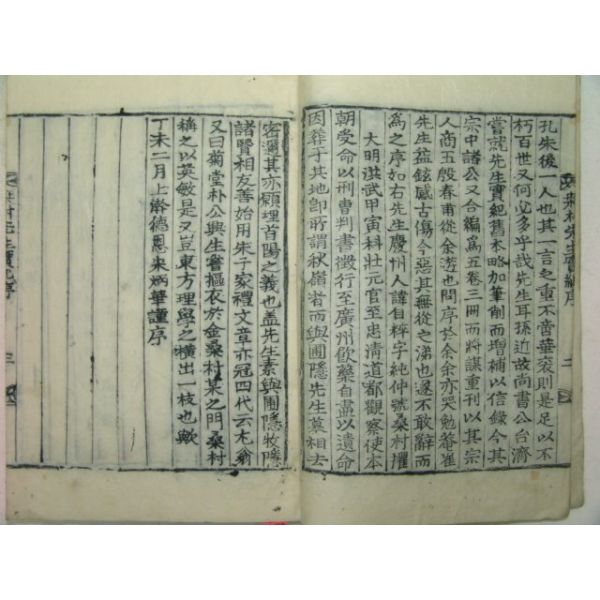 孔朱後一人也其一言之重不啻華袞則是足以不
朽百世又何必多乎哉先生耳孫近故尚書公台濟
嘗就先生實紀舊本略加筆削而增補以信錄今其
宗中諸公又合編爲五卷三冊而將謀重刊以其宗
人商五殷春甫從余遊也問序於余余亦哭勉菴崔
先生益鉉感古傷今惡其無從之涕也遂不敢辭而
爲之序如右先生慶州人諱自粹字純仲號桑村擢
大明洪武甲寅科壯元官至忠清道都觀察使本
朝受命以刑曹判書徵行至廣州飮藥自盡以遺命
因葬于其地卽所謂秋嶺者而與圃隱先生墓相去
密邇其亦顧埋首陽之義也盖先生素與圃隱牧隱
諸賢相友善始用朱子家禮文章亦冠四代云尤翁
又曰菊堂朴公興生嘗摳衣於金桑村某之門桑村
稱之以英敏是又豈東方理學之橫出一枝也歟
丁未二月上澣德恩宋炳華謹序
桑村先生實紀序
二
桑村先生實紀序
三